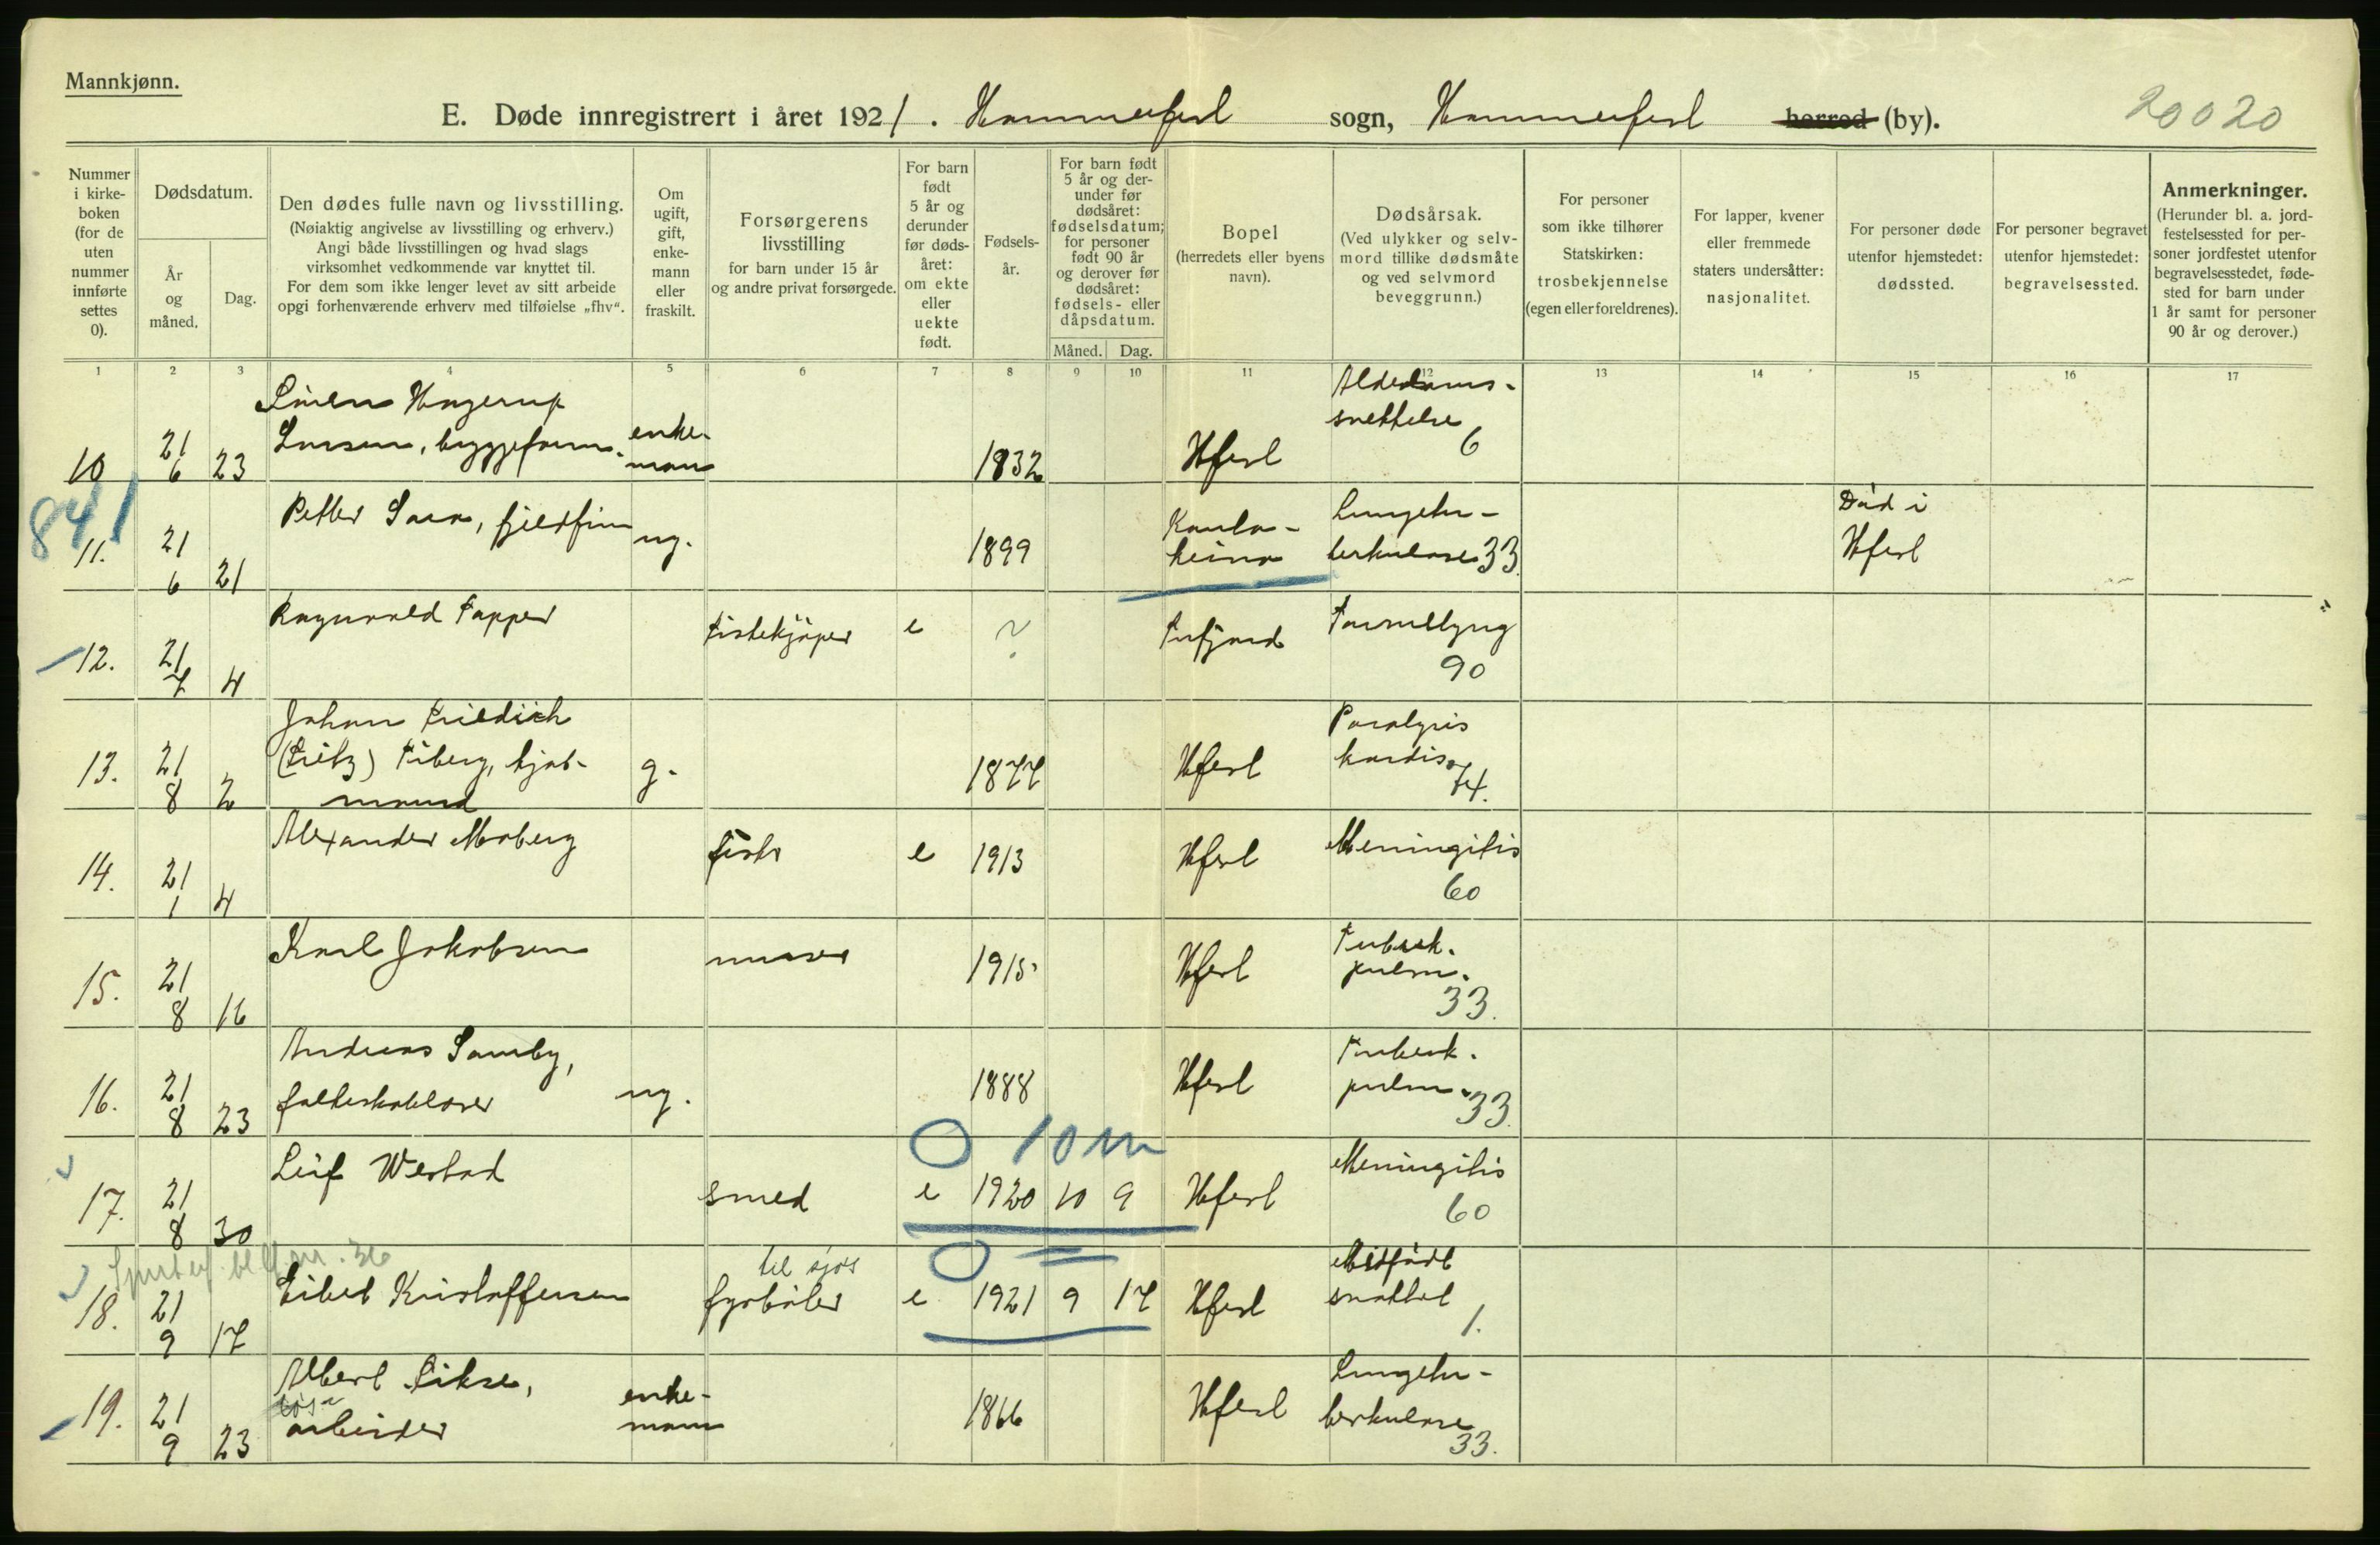 Mannkjønn.
E. Døde innregistrert i året 1921. Hammerfest sogn, Hammerfest herred (by).
20020
Nummer i kirkeboken (for de uten nummer innførte settes 0).
Dødsdatum.
År og måned.
Dag.
Den dødes fulle navn og livsstilling.
(Nøiaktig angivelse av livsstilling og erhverv.)
Angi både livsstillingen og hvad slags
virksomhet vedkommende var knyttet til.
For dem som ikke lenger levet av sitt arbeide
opgi forhenværende erhverv med tilføielse „fhv“.
Om ugift, gift, enkemann eller fraskilt.
Forsørgerens
livsstilling
for barn under 15 år
og andre privat forsørgede.
For barn født 5 år og derunder før dødsåret: om ekte eller uekte født.
Fødselsår.
For barn født 5 år og derunder før dødsåret: fødselsdatum; for personer født 90 år og derover før dødsåret: fødsels- eller dåpsdatum.
Måned. Dag.
Bopel
(herredets eller byens navn).
Dødsårsak.
(Ved ulykker og selvmord tillike dødsmåte og ved selvmord beveggrunn.)
For personer som ikke tilhører Statskirken: trosbekjennelse (egen eller foreldrenes).
For lapper, kvener eller fremmede staters undersåtter: nasjonalitet.
For personer døde utenfor hjemstedet: dødssted.
For personer begravet utenfor hjemstedet: begravelsessted.
Anmerkninger.
(Herunder bl. a. jordfestelsessted for personer jordfestet utenfor begravelsesstedet, fødested for barn under 1 år samt for personer 90 år og derover.)
1 2 3 4 5 6 7 8 9 10 11 12 13 14 15 16 17
10 21 6 23 Sören Hagerup
Larsen, byggeform. enkemann 1832 Hfest Alderdomssvekkelse 6
841
11. 21 6 21 Petter Sara, fjeldfin ug. 1899 Kautokeino Lungetuberkulose 33. Död i Hfest
12. 21 7 4 Ragnvald Tapper fiskekjöper e ? Tufjord Tarmslyng 90
13. 21 8 2 Johan Friedrich
(Fritz) Fiberg, kjøbmand g. 1877 Hfest Paralysis kordis 74.
14. 21 1 4 Alexander Moberg fisk e 1913 Hfest Meningitis 60
15. 21 8 16 Karl Jakobsen murer 1915 Hfest Tuberk. pulm. 33.
16. 21 8 23 Andreas Samby,
ug. 1888 Hfest Tuberk. pulm. 33.
0 10 m
17. 21 8 30 Leif Westad smed e 1920 10 9 Hfest Meningitis 60
0
18. 21 9 17 Eibet Kristoffersen til sjös fyrböter e 1921 9 17 Hfest Medfödt svakhet 1.
19. 21 9 23 Albert Eikse,
løsarbeider enkemann 1866 Hfest Lungetuberkulose 33.